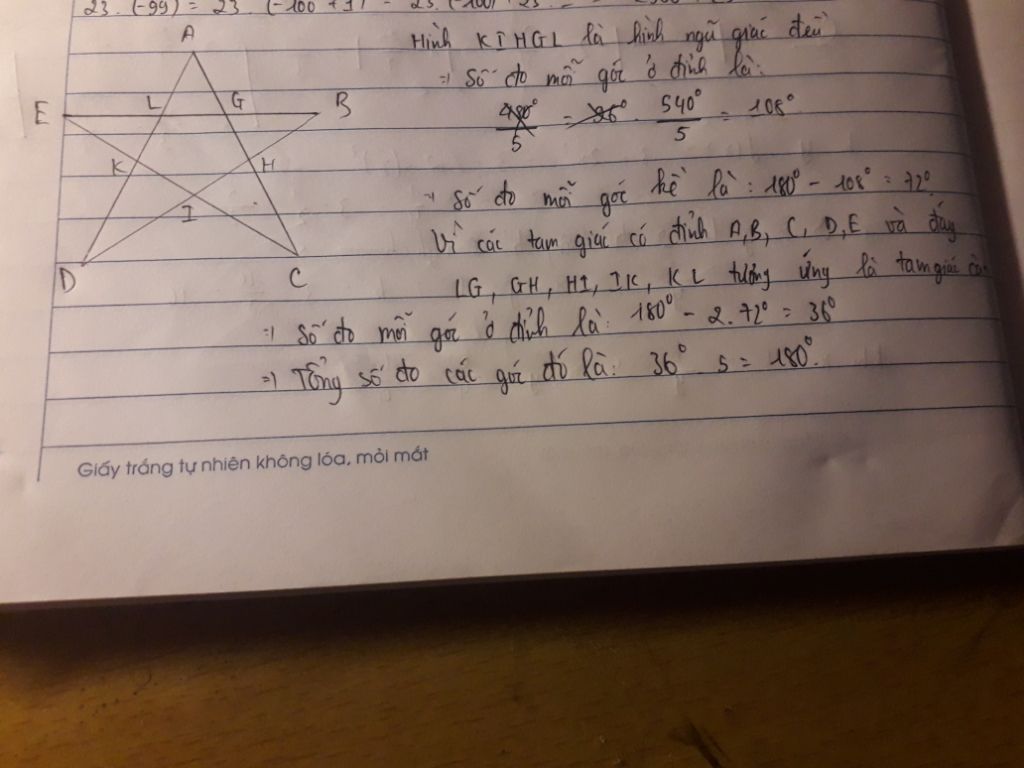 23. (-99) = 23. (-100 + 1) = 23. (-100) + 23
A
L G
E B
K H
I
D C
Hình KIHGL là hình ngũ giác đều
=) Số đo mỗi góc ở đỉnh là:
540°/5 = 108°
=) Số đo mỗi góc kề là: 180° - 108° = 72°
Vì các tam giác có đỉnh A, B, C, D, E và đáy
LG, GH, HI, IK, KL tương ứng là tam giác
=) Số đo mỗi góc ở đỉnh là: 180° - 2.72° = 36°
=) Tổng số đo các góc đó là: 36° 5 = 180°.
Giấy trắng tự nhiên không lóa, mỏi mắt